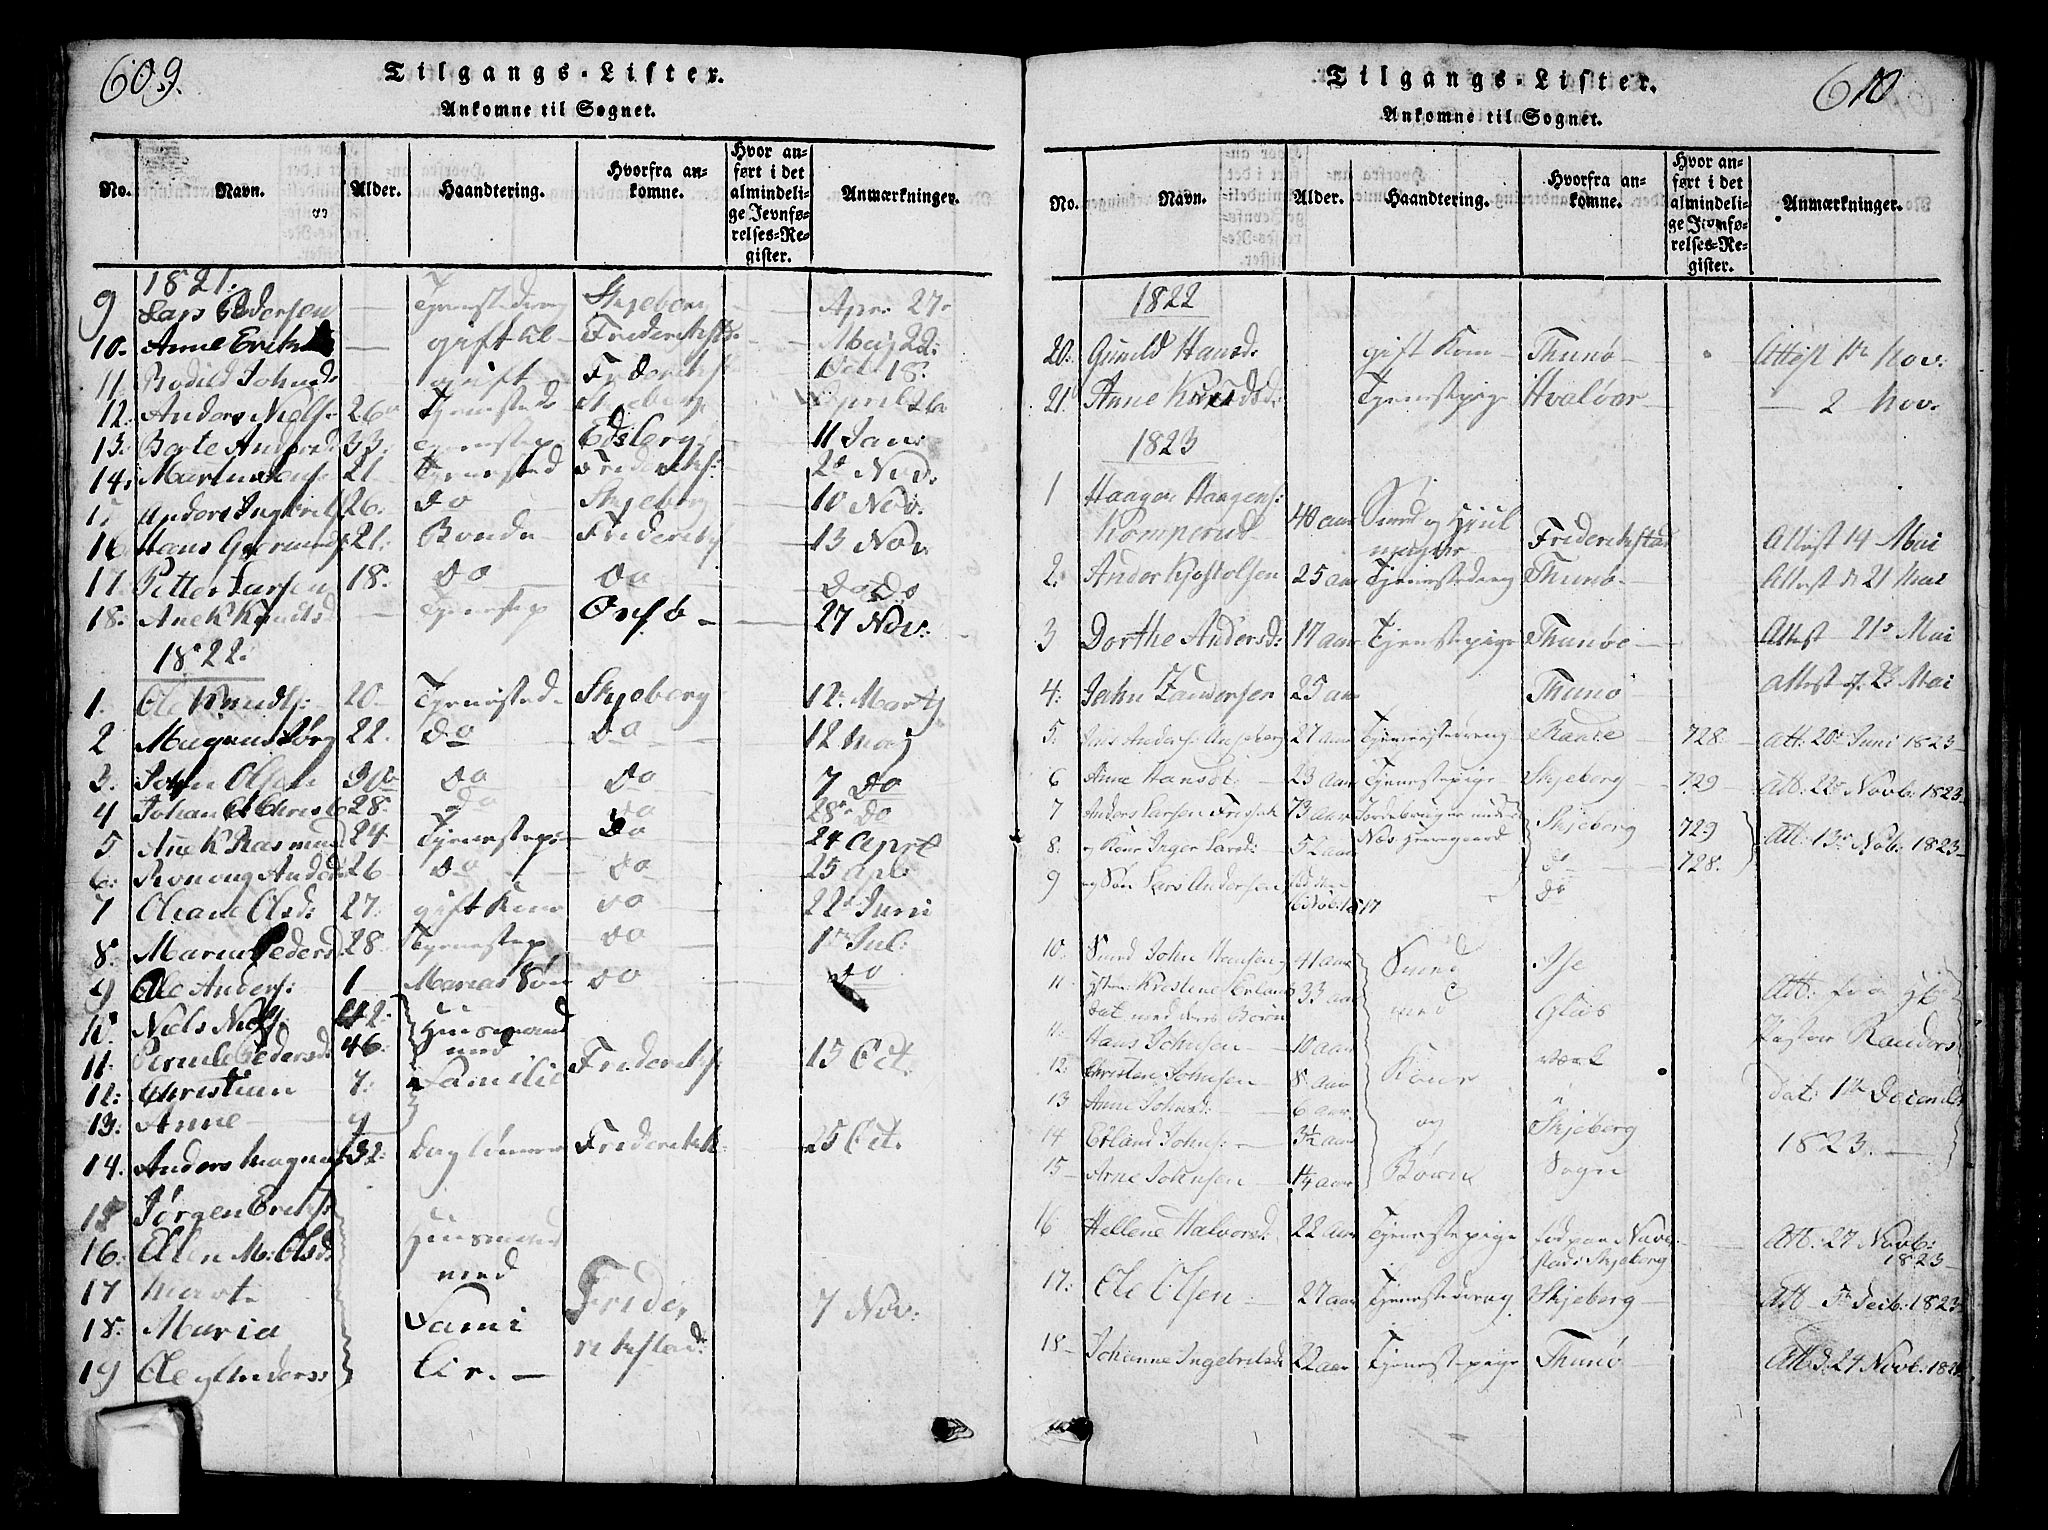 609.
Tilgangs-Lister.
Ankomne til Sognet.
No. Navn. Alder. Haandtering. Hvorfra ankomne. Hvor anført i det almindelige Jevnførelses-Register. Anmærkninger.
1821.
9 Lars Pedersen — Tjenestedreng Skjeberg — Apr. 27
10. Anne Eriks — gift Frederikst. Maj 22.
11. Bodild Johnsd — gift Frederiks Oct 18.
12. Anders Niels 26 Tjenested Skjeberg April 26
13. Berte Andersd 33. Tjenestep Edsberg 11 Jan:
14. 21 Tjenested Frederiks: 2 Nov.
Anders Ingbrils 26. do Skjeberg 10 Nov.
16 Hans 21. Bonde Frederiks 13 Nov
17. Petter Larsen 18. do — do do do
18. Ane K Knudsd — Tjenestep Onsø — 27 Nov:
1822.
1. Ole Knuds: 20. Tjenested. Skjeberg 12. Marts
2 22. do do 12 Maj
3. John Olsen 30 do do 7 do
4 Johan Christ 28. do do 28 do
5 Ane K Rasmusd 24. Tjenestepi do 24 Aprl
6. Ronnog Anders 26 do do 25 Apl:
7 Oleane Olsd: 27. gift Kone do 22 Juni
8. Maria Peders 28. Tjenestep do 1 Jul:
9 Ole Anders: 1 Marias Søn do do
10. Niels Niels. 42. Huusmand
11. Pernele Pedersd. 46. med Frederiks 15 Oct.
12: Christian 7. Familie
13. Anne 4
14. Anders Magnus 32: Daglønner Frederikst. 25 Oct.
15 Jørgen Eriks
16. Ellen M. Olsd. Huusmand
17 Marte med Frider
18. Maria Fami rikstad: 7 Nov:
19 Ole Anders lie. —
610
Tilgangs-Lister.
Ankomne til Sognet.
No. Navn. Alder. Haandtering. Hvorfra ankomne. Hvor anført i det almindelige Jevnførelses-Register. Anmærkninger.
1822
20. Gunild Hansd. gift Kon Thunø — Attest 1te Nov:
21. Anne Knudsd. Tjenestepige Hvaløer — 2 Nov.
1823
1 Haagen Haagens:
Komperud 40 aar Smed og Hjul Frederikstad Attest 14 Mai
2. Anders Kjøstolsen 25 aar Tjenestedreng Thunø — Attest d 21 Mai
3 Dorthe Andersd: 17 aar Tjenestepige Thunøe — Attest 21 Mai
4. John Zandersen 25 aar Thunø Attest 28 Mai
5. Jens Anders: 27 aar Tjenestedreng Raade 728. Att. 20 Juni 1823
6 Anne Hansdt: 23 aar Tjenestepige Skjeberg 729 Att. 22 Novb: 1823
7 Anders Larsen 73 aar Jordebruger under Skjeberg 729 Att: 13 Nob: 1823
8. og Kone Inger Larsd: 52 aar do 728.
9 og Søn Lars Andersen fød den do
6 Nob: 1817
10. Smed John Hansen 41 aar Smed Ise
11 Kirstine Erlands 33 aar med Glas Att:
dat. med deres Børn Pastor Randers
11. Hans Johnsen — 10 aar Kone værk
12. Christen Johnsen — 8 aar i dat: 1te December
13 Anne Johnsd: 6 aar.
14 Erland Johns: 3½ aar og Skjeberg 1823.
15 Arne Johnsen 1¼ aar Børn Sogn
16 Hellene Halvorsd: 22 aar Tjenestepige fød paa Att. 27 Novb:
i Skjeberg 1823
17. Ole Olsen 27 aar Tjenestedreng Skjeberg Att 5te Decb. 1823
18 Johanne Ingebretsd. 22 aar Tjenestepige Thunø Att d. 24 Novb.